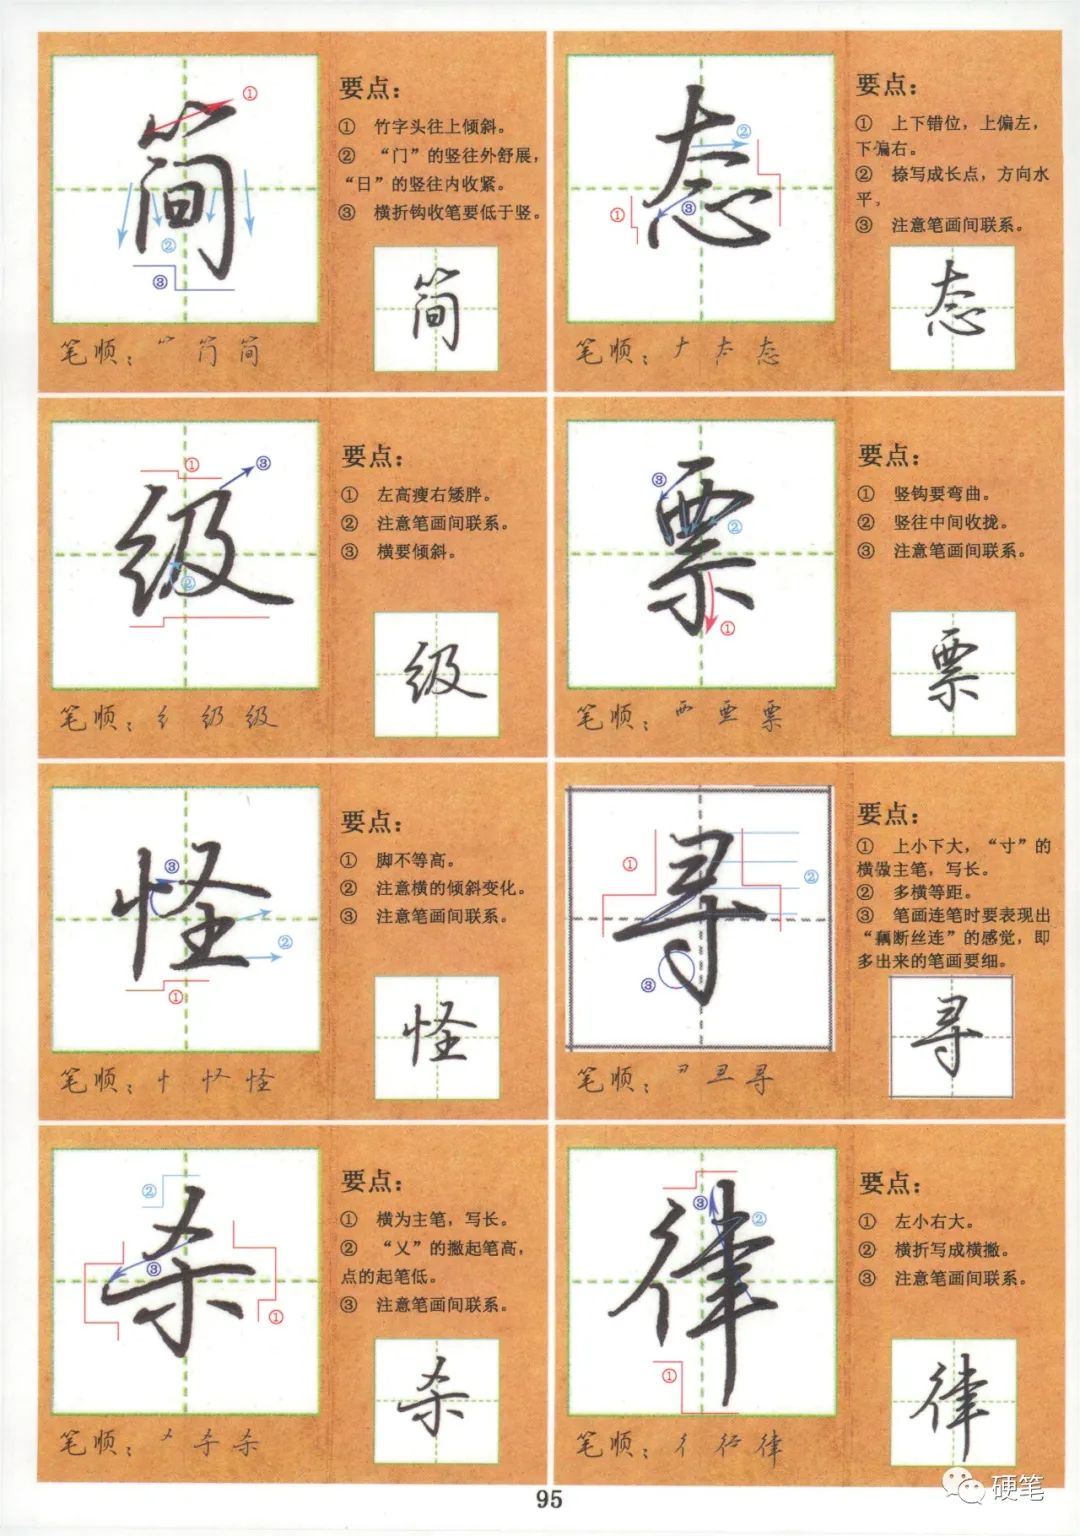 简
①
②
③
要点：
① 竹字头往上倾斜。
② “门”的竖往外舒展，
“日”的竖往内收紧。
③ 横折钩收笔要低于竖。
简
笔顺：⺮ 简
态
①
②
③
要点：
① 上下错位，上偏左，
下偏右。
② 捺写成长点，方向水
平，
③ 注意笔画间联系。
态
笔顺：ナ 太 态
级
①
②
③
要点：
① 左高瘦右矮胖。
② 注意笔画间联系。
③ 横要倾斜。
级
笔顺：纟 级
票
①
②
③
要点：
① 竖钩要弯曲。
② 竖往中间收拢。
③ 注意笔画间联系。
票
笔顺：覀 票
怪
①
②
③
要点：
① 脚不等高。
② 注意横的倾斜变化。
③ 注意笔画间联系。
怪
笔顺：忄 怪
寻
①
②
③
要点：
① 上小下大，“寸”的
横做主笔，写长。
② 多横等距。
③ 笔画连笔时要表现出
“藕断丝连”的感觉，即
多出来的笔画要细。
寻
笔顺：彐 寻
杀
①
②
③
要点：
① 横为主笔，写长。
② “乂”的撇起笔高，
点的起笔低。
③ 注意笔画间联系。
杀
笔顺：杀
律
①
②
③
要点：
① 左小右大。
② 横折写成横撇。
③ 注意笔画间联系。
律
笔顺：彳 律
95
硬笔